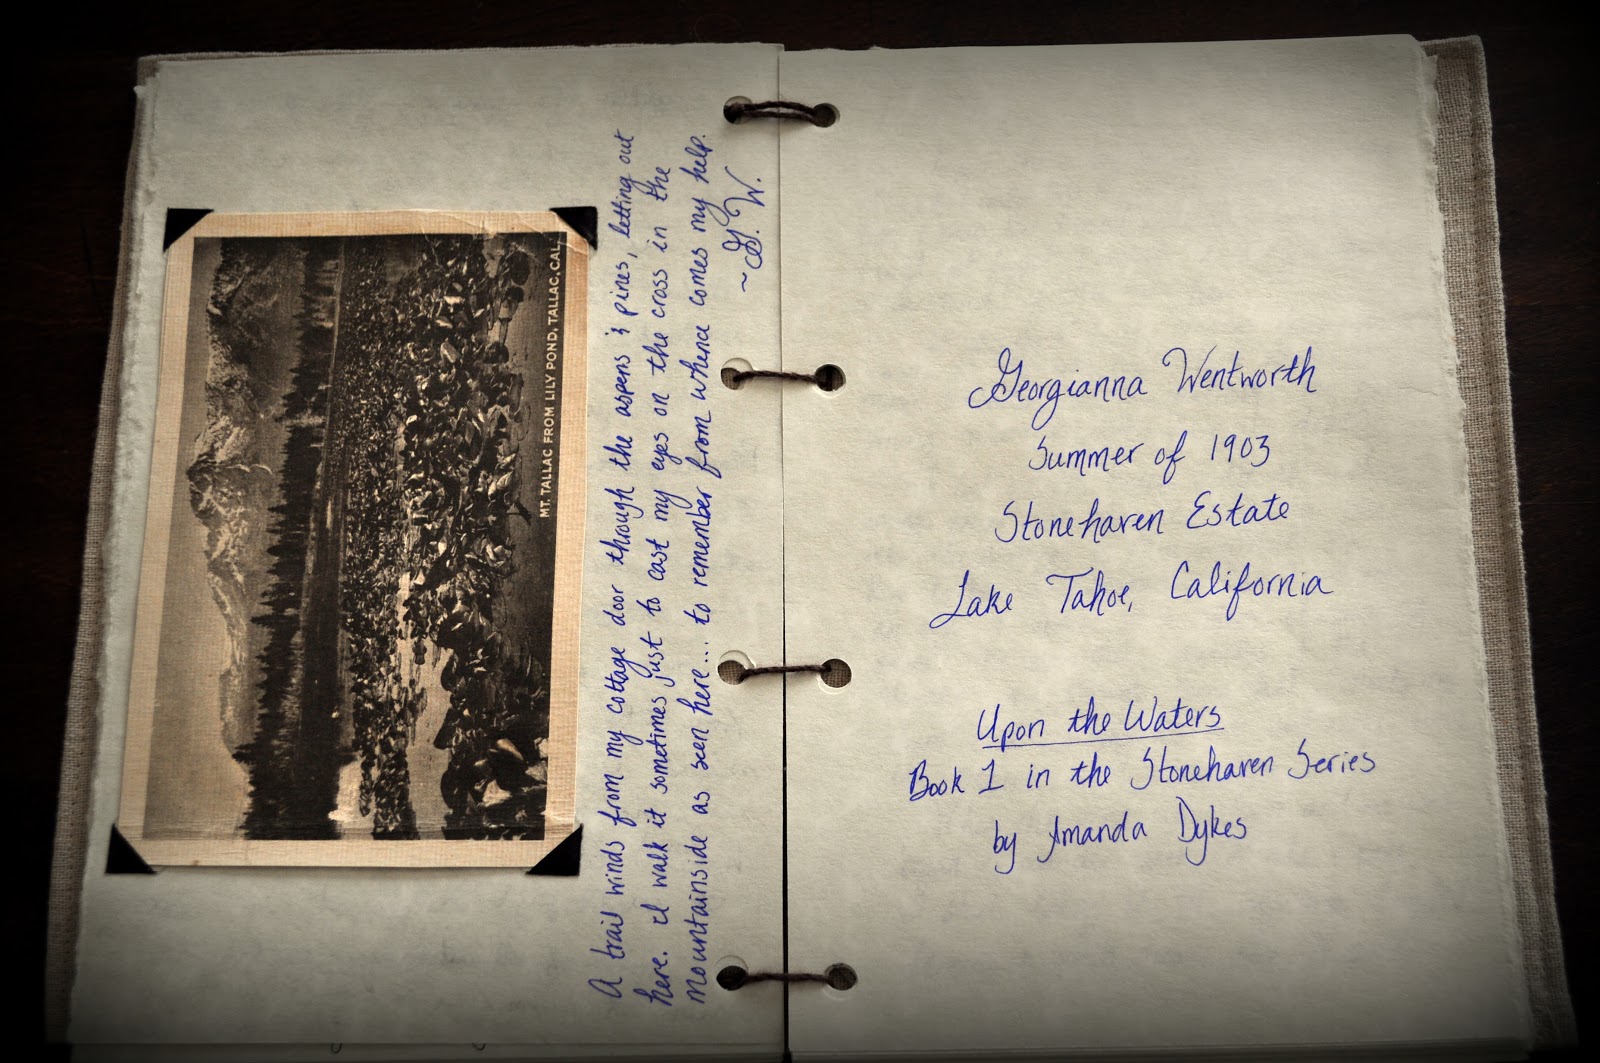 MT. TALLAC FROM LILY POND, TALLAC, CAL.
A trail winds from my cottage door through the aspens & pines, letting out
here. I walk it sometimes just to cast my eyes on the cross in the
mountainside as seen here... to remember from whence comes my help.
~G. W.
Georgianna Wentworth
Summer of 1903
Stonehaven Estate
Lake Tahoe, California
Upon the Waters
Book 1 in the Stonehaven Series
by Amanda Dykes